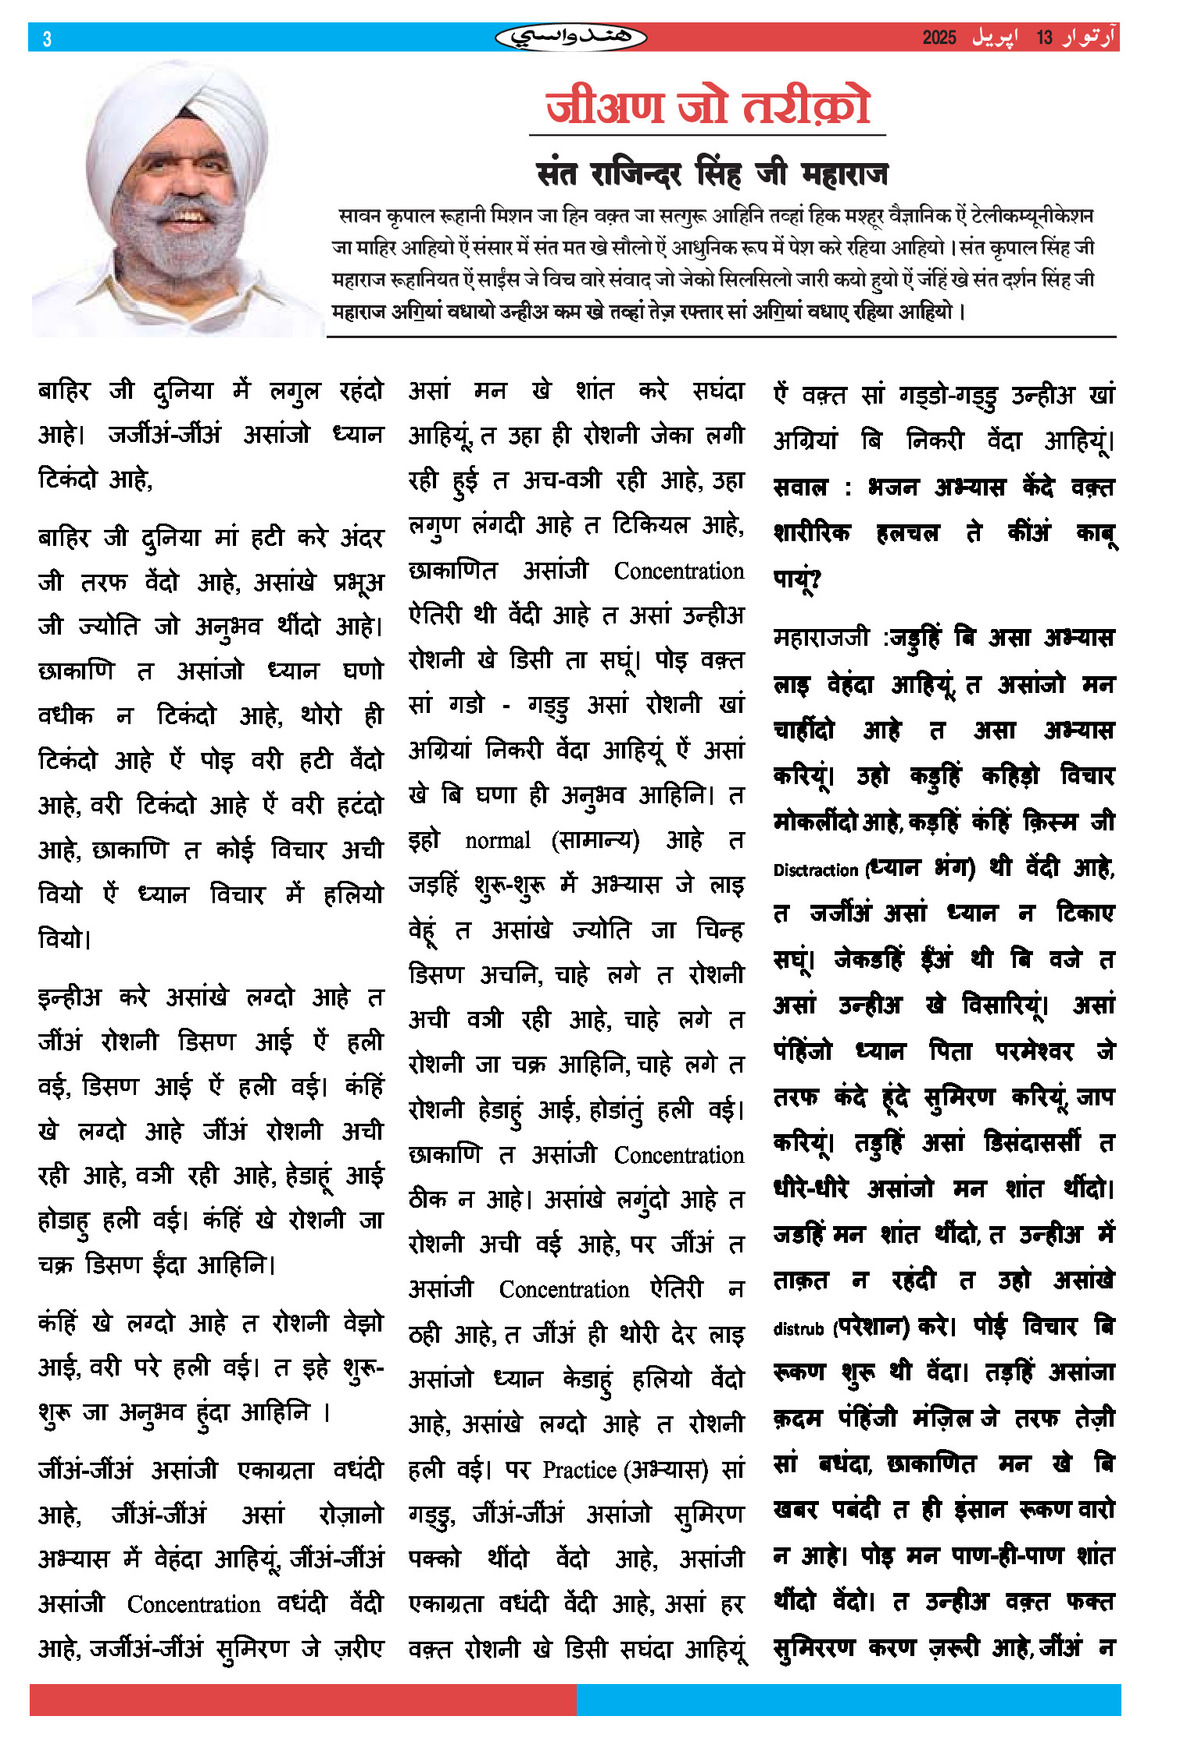 3
هندواسي
آرتوار 13 اپريل 2025
जीअण जो तरीक़ो
संत राजिन्दर सिंह जी महाराज
सावन कृपाल रूहानी मिशन जा हिन वक़्त जा सत्गुरू आहिनि तव्हां हिक मश्हूर वैज्ञानिक ऐं टेलीकम्यूनीकेशन
जा माहिर आहियो ऐं संसार में संत मत खे सौलो ऐं आधुनिक रूप में पेश करे रहिया आहियो । संत कृपाल सिंह जी
महाराज रूहानियत ऐं साईंस जे विच वारे संवाद जो जेको सिलसिलो जारी कयो हुयो ऐं जंहिं खे संत दर्शन सिंह जी
महाराज अगि॒यां वधायो उन्हीअ कम खे तव्हां तेज़ रफ्तार सां अगि॒यां वधाए रहिया आहियो ।
बाहिर जी दुनिया में लगुल रहंदो
आहे। जर्जीअं-जींअं असांजो ध्यान
टिकंदो आहे,
बाहिर जी दुनिया मां हटी करे अंदर
जी तरफ वेंदो आहे, असांखे प्रभूअ
जी ज्योति जो अनुभव थींदो आहे।
छाकाणि त असांजो ध्यान घणो
वधीक न टिकंदो आहे, थोरो ही
टिकंदो आहे ऐं पोइ वरी हटी वेंदो
आहे, वरी टिकंदो आहे ऐं वरी हटंदो
आहे, छाकाणि त कोई विचार अची
वियो ऐं ध्यान विचार में हलियो
वियो।
इन्हीअ करे असांखे लग्दो आहे त
जींअं रोशनी डिसण आई ऐं हली
वई, डिसण आई ऐं हली वई। कंहिं
खे लग्दो आहे जींअं रोशनी अची
रही आहे, वञी रही आहे, हेडाहूं आई
होडाहु हली वई। कंहिं खे रोशनी जा
चक्र डिसण ईंदा आहिनि।
कंहिं खे लग्दो आहे त रोशनी वेझो
आई, वरी परे हली वई। त इहे शुरू-
शुरू जा अनुभव हुंदा आहिनि ।
जींअं-जींअं असांजी एकाग्रता वधंदी
आहे, जींअं-जींअं असां रोज़ानो
अभ्यास में वेहंदा आहियूं, जींअं-जींअं
असांजी Concentration वधंदी वेंदी
आहे, जर्जीअं-जींअं सुमिरण जे ज़रीए
असां मन खे शांत करे सघंदा
आहियूं, त उहा ही रोशनी जेका लगी
रही हुई त अच-वञी रही आहे, उहा
लगुण लंगदी आहे त टिकियल आहे,
छाकाणित असांजी Concentration
ऐतिरी थी वेंदी आहे त असां उन्हीअ
रोशनी खे डिसी ता सघूं। पोइ वक़्त
सां गडो - गड्डु असां रोशनी खां
अग्रियां निकरी वेंदा आहियूं ऐं असां
खे बि घणा ही अनुभव आहिनि। त
इहो normal (सामान्य) आहे त
जइहिं शुरू-शुरू में अभ्यास जे लाइ
वेहूं त असांखे ज्योति जा चिन्ह
डिसण अचनि, चाहे लगे त रोशनी
अची वञी रही आहे, चाहे लगे त
रोशनी जा चक्र आहिनि, चाहे लगे त
रोशनी हेडाहुं आई, होडांतुं हली वई।
छाकाणि त असांजी Concentration
ठीक न आहे। असांखे लगुंदो आहे त
रोशनी अची वई आहे, पर जींअं त
असांजी Concentration ऐतिरी न
ठही आहे, त जींअं ही थोरी देर लाइ
असांजो ध्यान केडाहुं हलियो वेंदो
आहे, असांखे लग्दो आहे त रोशनी
हली वई। पर Practice (अभ्यास) सां
गड्डु, जींअं-जींअं असांजो सुमिरण
पक्को थींदो वेंदो आहे, असांजी
एकाग्रता वधंदी वेंदी आहे, असां हर
वक़्त रोशनी खे डिसी सघंदा आहियूं
ऐं वक़्त सां गड्डो-गड्डु उन्हीअ खां
अग्रियां बि निकरी वेंदा आहियूं।
सवाल : भजन अभ्यास केंदे वक़्त
शारीरिक हलचल ते कींअं काबू
पायूं?
महाराजजी :जडुहिं बि असा अभ्यास
लाइ वेहंदा आहियूं, त असांजो मन
चाहींदो आहे त असा अभ्यास
करियूं। उहो कडुहिं कहिड़ो विचार
मोकलींदो आहे, कड़हिं कंहिं क़िस्म जी
Disctraction (ध्यान भंग) थी वेंदी आहे,
त जर्जीअं असां ध्यान न टिकाए
सघूं। जेकडहिं ईंअं थी बि वजे त
असां उन्हीअ खे विसारियूं। असां
पंहिंजो ध्यान पिता परमेश्वर जे
तरफ कंदे हूंदे सुमिरण करियूं, जाप
करियूं। तडुहिं असां डिसंदासर्सी त
धीरे-धीरे असांजो मन शांत थींदो।
जडहिं मन शांत थींदो, त उन्हीअ में
ताक़त न रहंदी त उहो असांखे
distrub (परेशान) करे। पोई विचार बि
रूकण शुरू थी वेंदा। तड़हिं असांजा
क़दम पंहिंजी मंज़िल जे तरफ तेज़ी
सां बधंदा, छाकाणित मन खे बि
खबर पबंदी त ही इंसान रूकण वारो
न आहे। पोइ मन पाण-ही-पाण शांत
थींदो वेंदो। त उन्हीअ वक़्त फक्त
सुमिररण करण ज़रूरी आहे, जींअं न